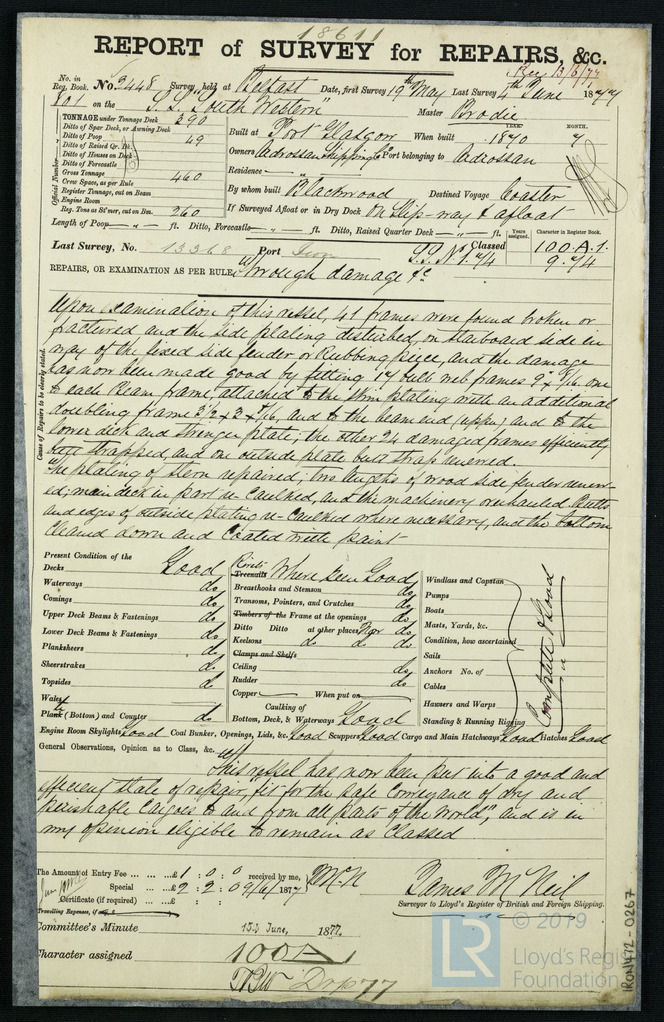 18611
REPORT of SURVEY for REPAIRS, &c.
Rec 13/6/77
No. in Reg. Book. No. 3448 Survey held at Belfast Date, first Survey 19th May Last Survey 4th June 1877
801 on the S.S. "South Western" Master Brodie
TONNAGE under Tonnage Deck 290
Ditto of Spar Deck, or Awning Deck
Ditto of Poop 49
Ditto of Raised Qr. Dk.
Ditto of Houses on Deck
Ditto of Forecastle
Gross Tonnage 460
Crew Space, as per Rule
Register Tonnage, cut on Beam
Engine Room
Reg. Tons as St'mer, cut on Bm. 260
Official Number
Built at Port Glasgow When built YEAR. 1870 MONTH. 7
Owners Adrossan Shipping Co Port belonging to Adrossan
Residence
By whom built Blackwood Destined Voyage Coaster
If Surveyed Afloat or in Dry Dock On Slip-way & afloat
Length of Poop ft. Ditto, Forecastle ft. Ditto, Raised Quarter Deck ft.
Last Survey, No. 13368 Port
Classed Years assigned. Character in Register Book.
100.A.1.
9.74
REPAIRS, OR EXAMINATION AS PER RULE, Through damage &c.
Cause of Repairs to be clearly stated.
Upon Examination of this vessel 41 frames were found broken or
fractured and the side plating disturbed, on starboard side in
way of the fixed side fender or Rubbing piece, and the damage
has now been made good by fitting 17 bulb web frames 9" x 8/16 one
to each Beam frame, attached to the skin plating with an additional
doubling frame 3½ x 3 x 7/16, and to the beam end (upper) and to the
lower deck and stringer plate; the other 24 damaged frames efficiently
butt strapped, and one outside plate butt strap renewed.
The plating of stern repaired; two lengths of wood side fender renew-
ed; main deck in part re-caulked, and the machinery overhauled Butts
and edges of outside plating re-caulked where necessary, and the bottom
cleaned down and coated with paint
Present Condition of the
Decks Good
Waterways do
Comings do
Upper Deck Beams & Fastenings do
Lower Deck Beams & Fastenings do
Planksheers do
Sheerstrakes do
Topsides do
Wales
Plank (Bottom) and Counter do
Rivets
Treenails Where seen Good
Breasthooks and Stemson do
Transoms, Pointers, and Crutches do
Timbers of the Frame at the openings do
Ditto Ditto at other places do
Keelsons do do do
Clamps and Shelfs
Ceiling do
Rudder do
Copper When put on
Caulking of
Bottom, Deck, & Waterways Good
Windlass and Capstan
Pumps
Boats
Masts, Yards, &c.
Condition, how ascertained
Sails
Anchors No. of
Cables
Hawsers and Warps
Standing & Running Rigging
Complete & Good
Engine Room Skylights Good Coal Bunker, Openings, Lids, &c. Good Scuppers Good Cargo and Main Hatchways Good Hatches Good
General Observations, Opinion as to Class, &c.
This vessel has now been put into a good and
efficient state of repair, fit for the safe conveyance of dry and
perishable Cargoes to and from all parts of the World", and is in
my opinion eligible to remain as Classed
The Amount of Entry Fee ... £1 : 0 : 0 received by me,
Special ... £2 : 2 : 0 9/6/1877 McN
Certificate (if required)
Travelling Expenses, if any, £
James McNeil
Surveyor to Lloyd's Register of British and Foreign Shipping.
Committee's Minute 15th June, 1877.
Character assigned 100A
© 2019
LR
Lloyd's Register
Foundation
IRON412-0267